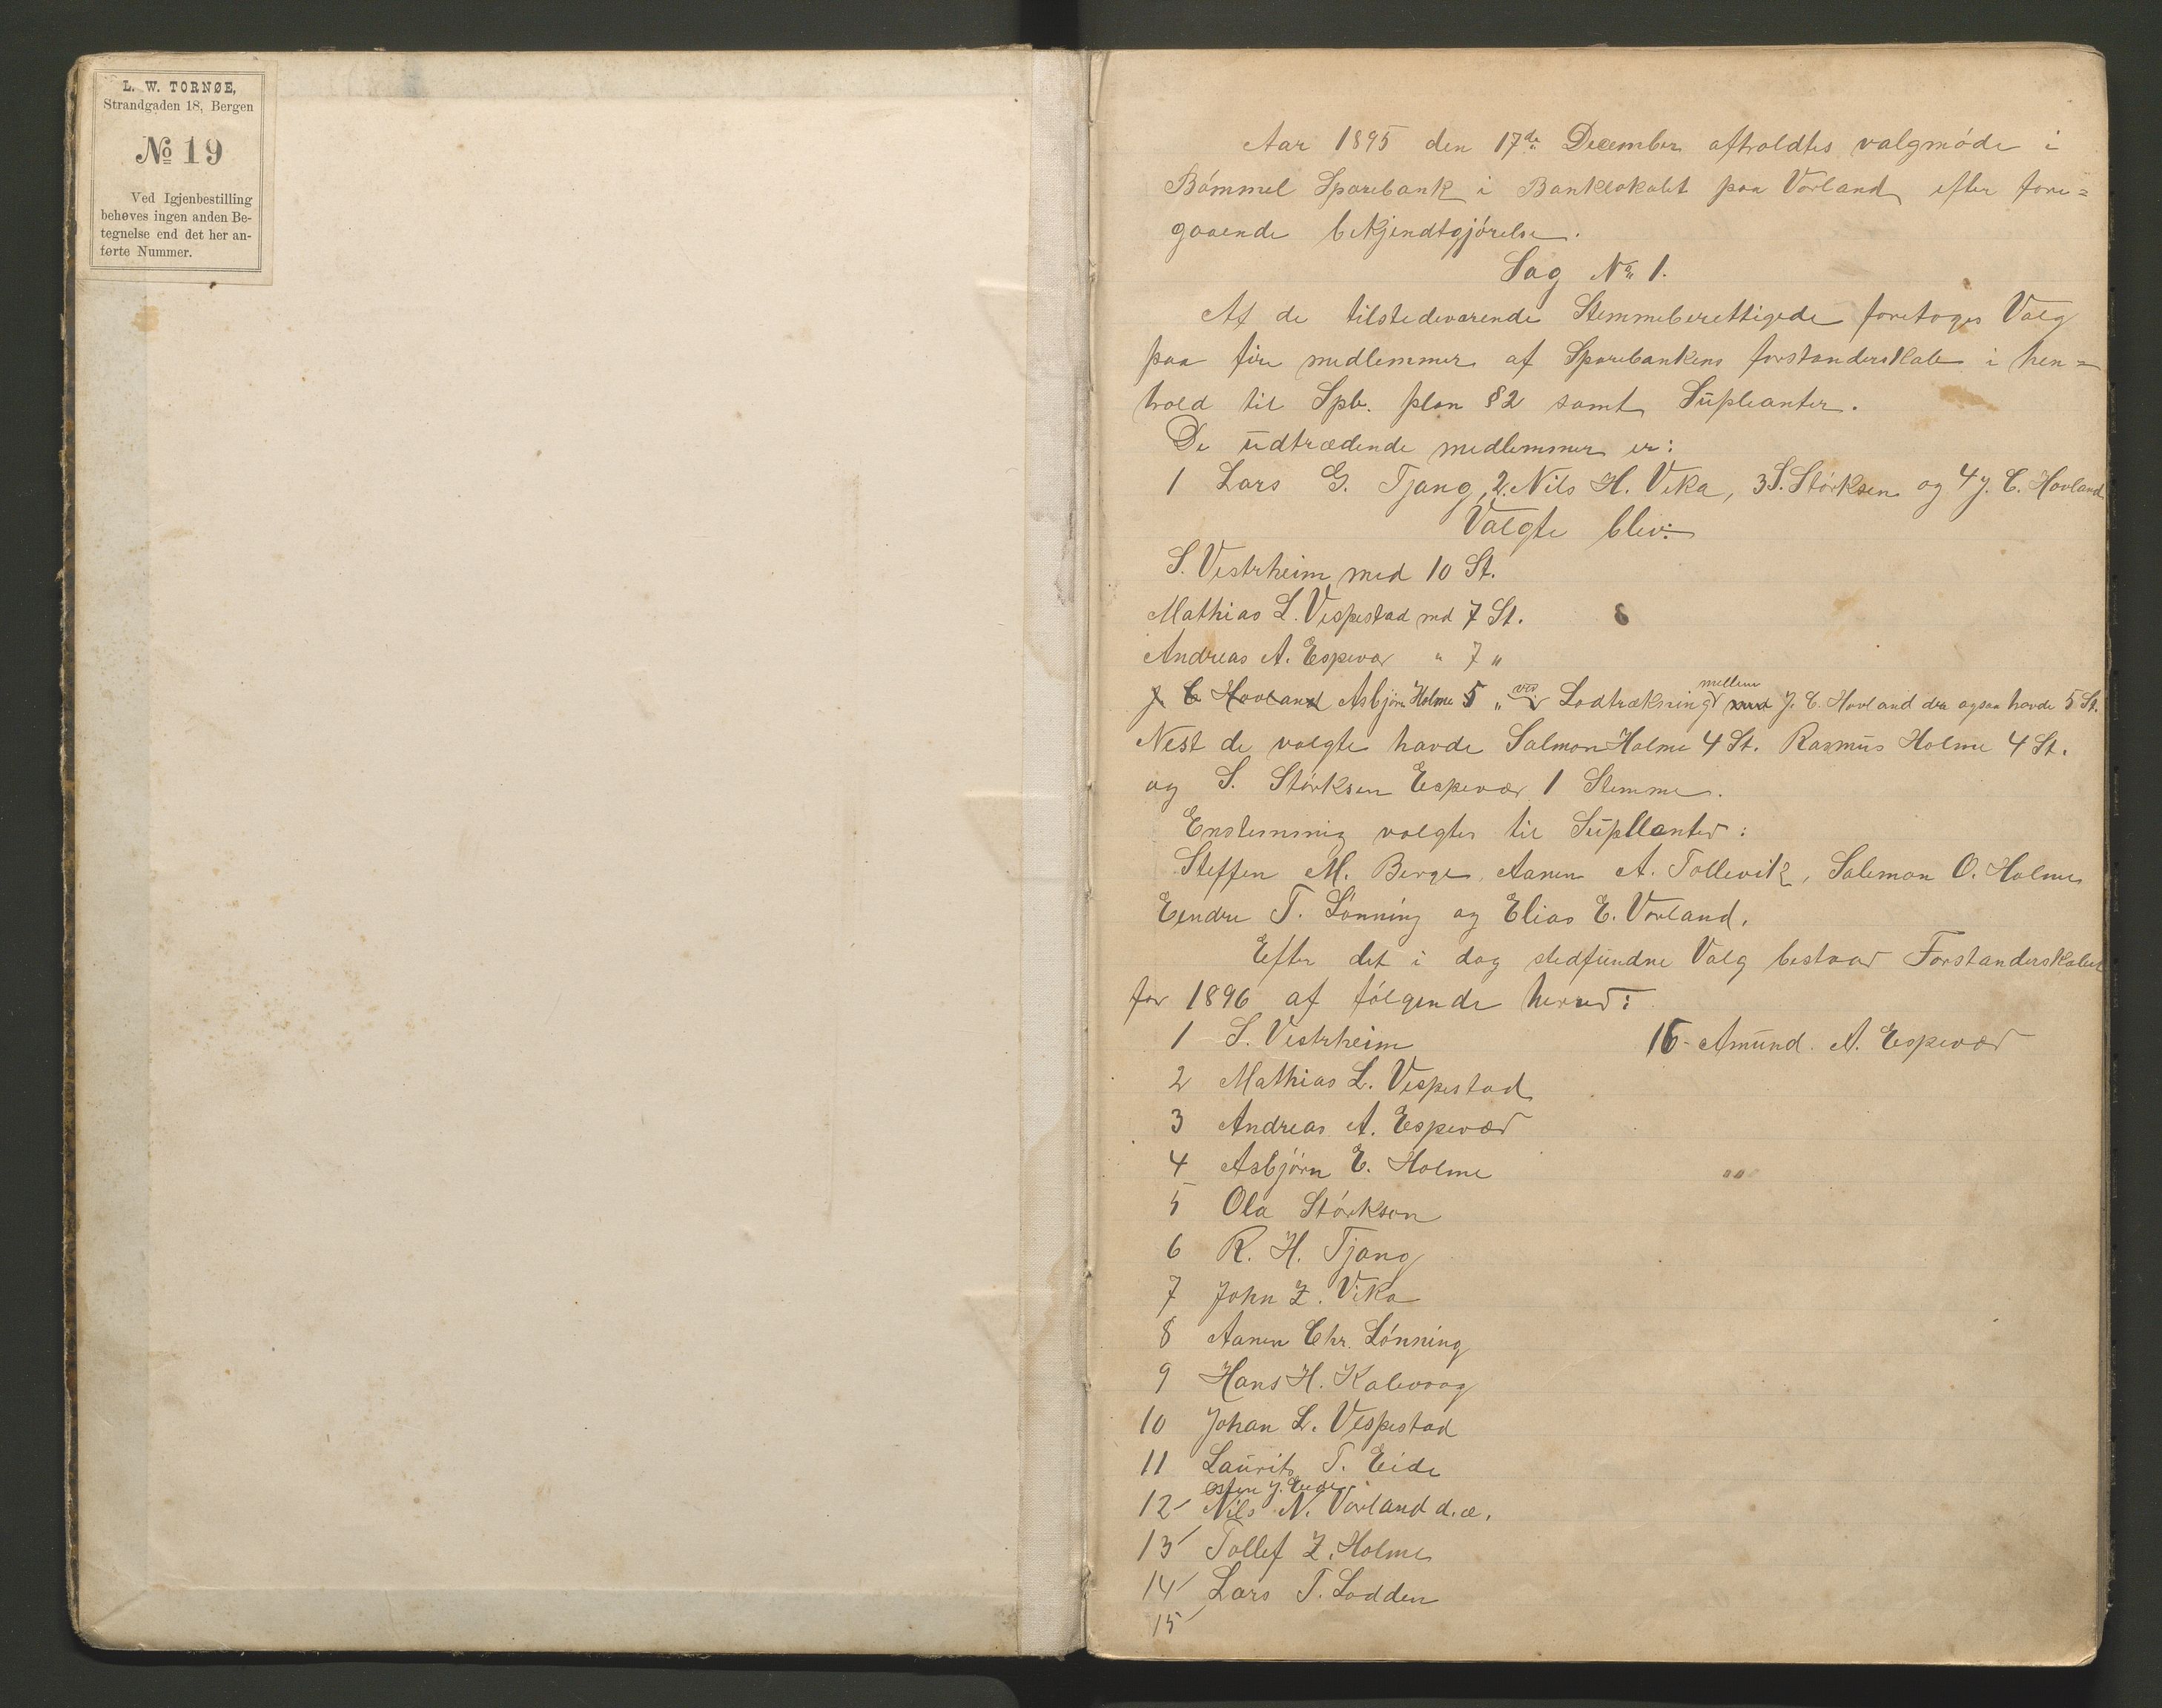 L. W. TORNØE,
Strandgaden 18, Bergen
No 19
Ved Igjenbestilling
behøves ingen anden Be-
tegnelse end det her an-
førte Nummer.
Aar 1895 den 17de December afholdtes valgmøde i
Bømmel Sparebank i Banklokalet paa Vorland efter fore=
gaaende bekjendtgjørelse.
Sag No 1.
Af de tilstedeværende Stemmeberettigede foretages Valg
paa fire medlemmer af Sparebankens forstanderskab i hen=
hold til Spb. plan §2 samt Supleanter.
De udtrædende medlemmer er:
1 Lars G. Tjang, 2. Nils H. Vika, 3 S. Størksen og 4 J. C. Hovland
Valgte blev:
S. Vestrheim med 10 St.
Mathias L. Vespestad med 7 St.
Andreas A. Espevær " 7 "
J. C. Hovland Asbjørn Holme 5 " ved Lodtrækning mellem J. C. Hovland der ogsaa havde 5 St.
Nest de valgte havde Salmon Holme 4 St. Rasmus Holme 4 St.
og S. Størksen Espevær 1 Stemme.
Enstemmig valgtes til Supllanter:
Steffen M. Berge, Aanen A. Tollevik, Salemon O. Holme
Endre T. Lønning og Elias E. Vorland.
Efter det i dag stedfundne Valg bestaar Forstanderskabet
for 1896 af følgende herrer:
1 S. Vestrheim
2 Mathias L. Vespestad
3 Andreas A. Espevær
4 Asbjørn E. Holme
5 Ola Størksen
6 R. H. Tjang
7 John Z. Vika
8 Aanen Chr. Lønning
9 Hans H. Kalevaag
10 Johan L. Vespestad
11 Laurits T. Eide
12 Nils N. Vorland d.æ.
13 Tollef Z. Holme
14 Lars T. Lodden
15
16 - Amund A. Espevær